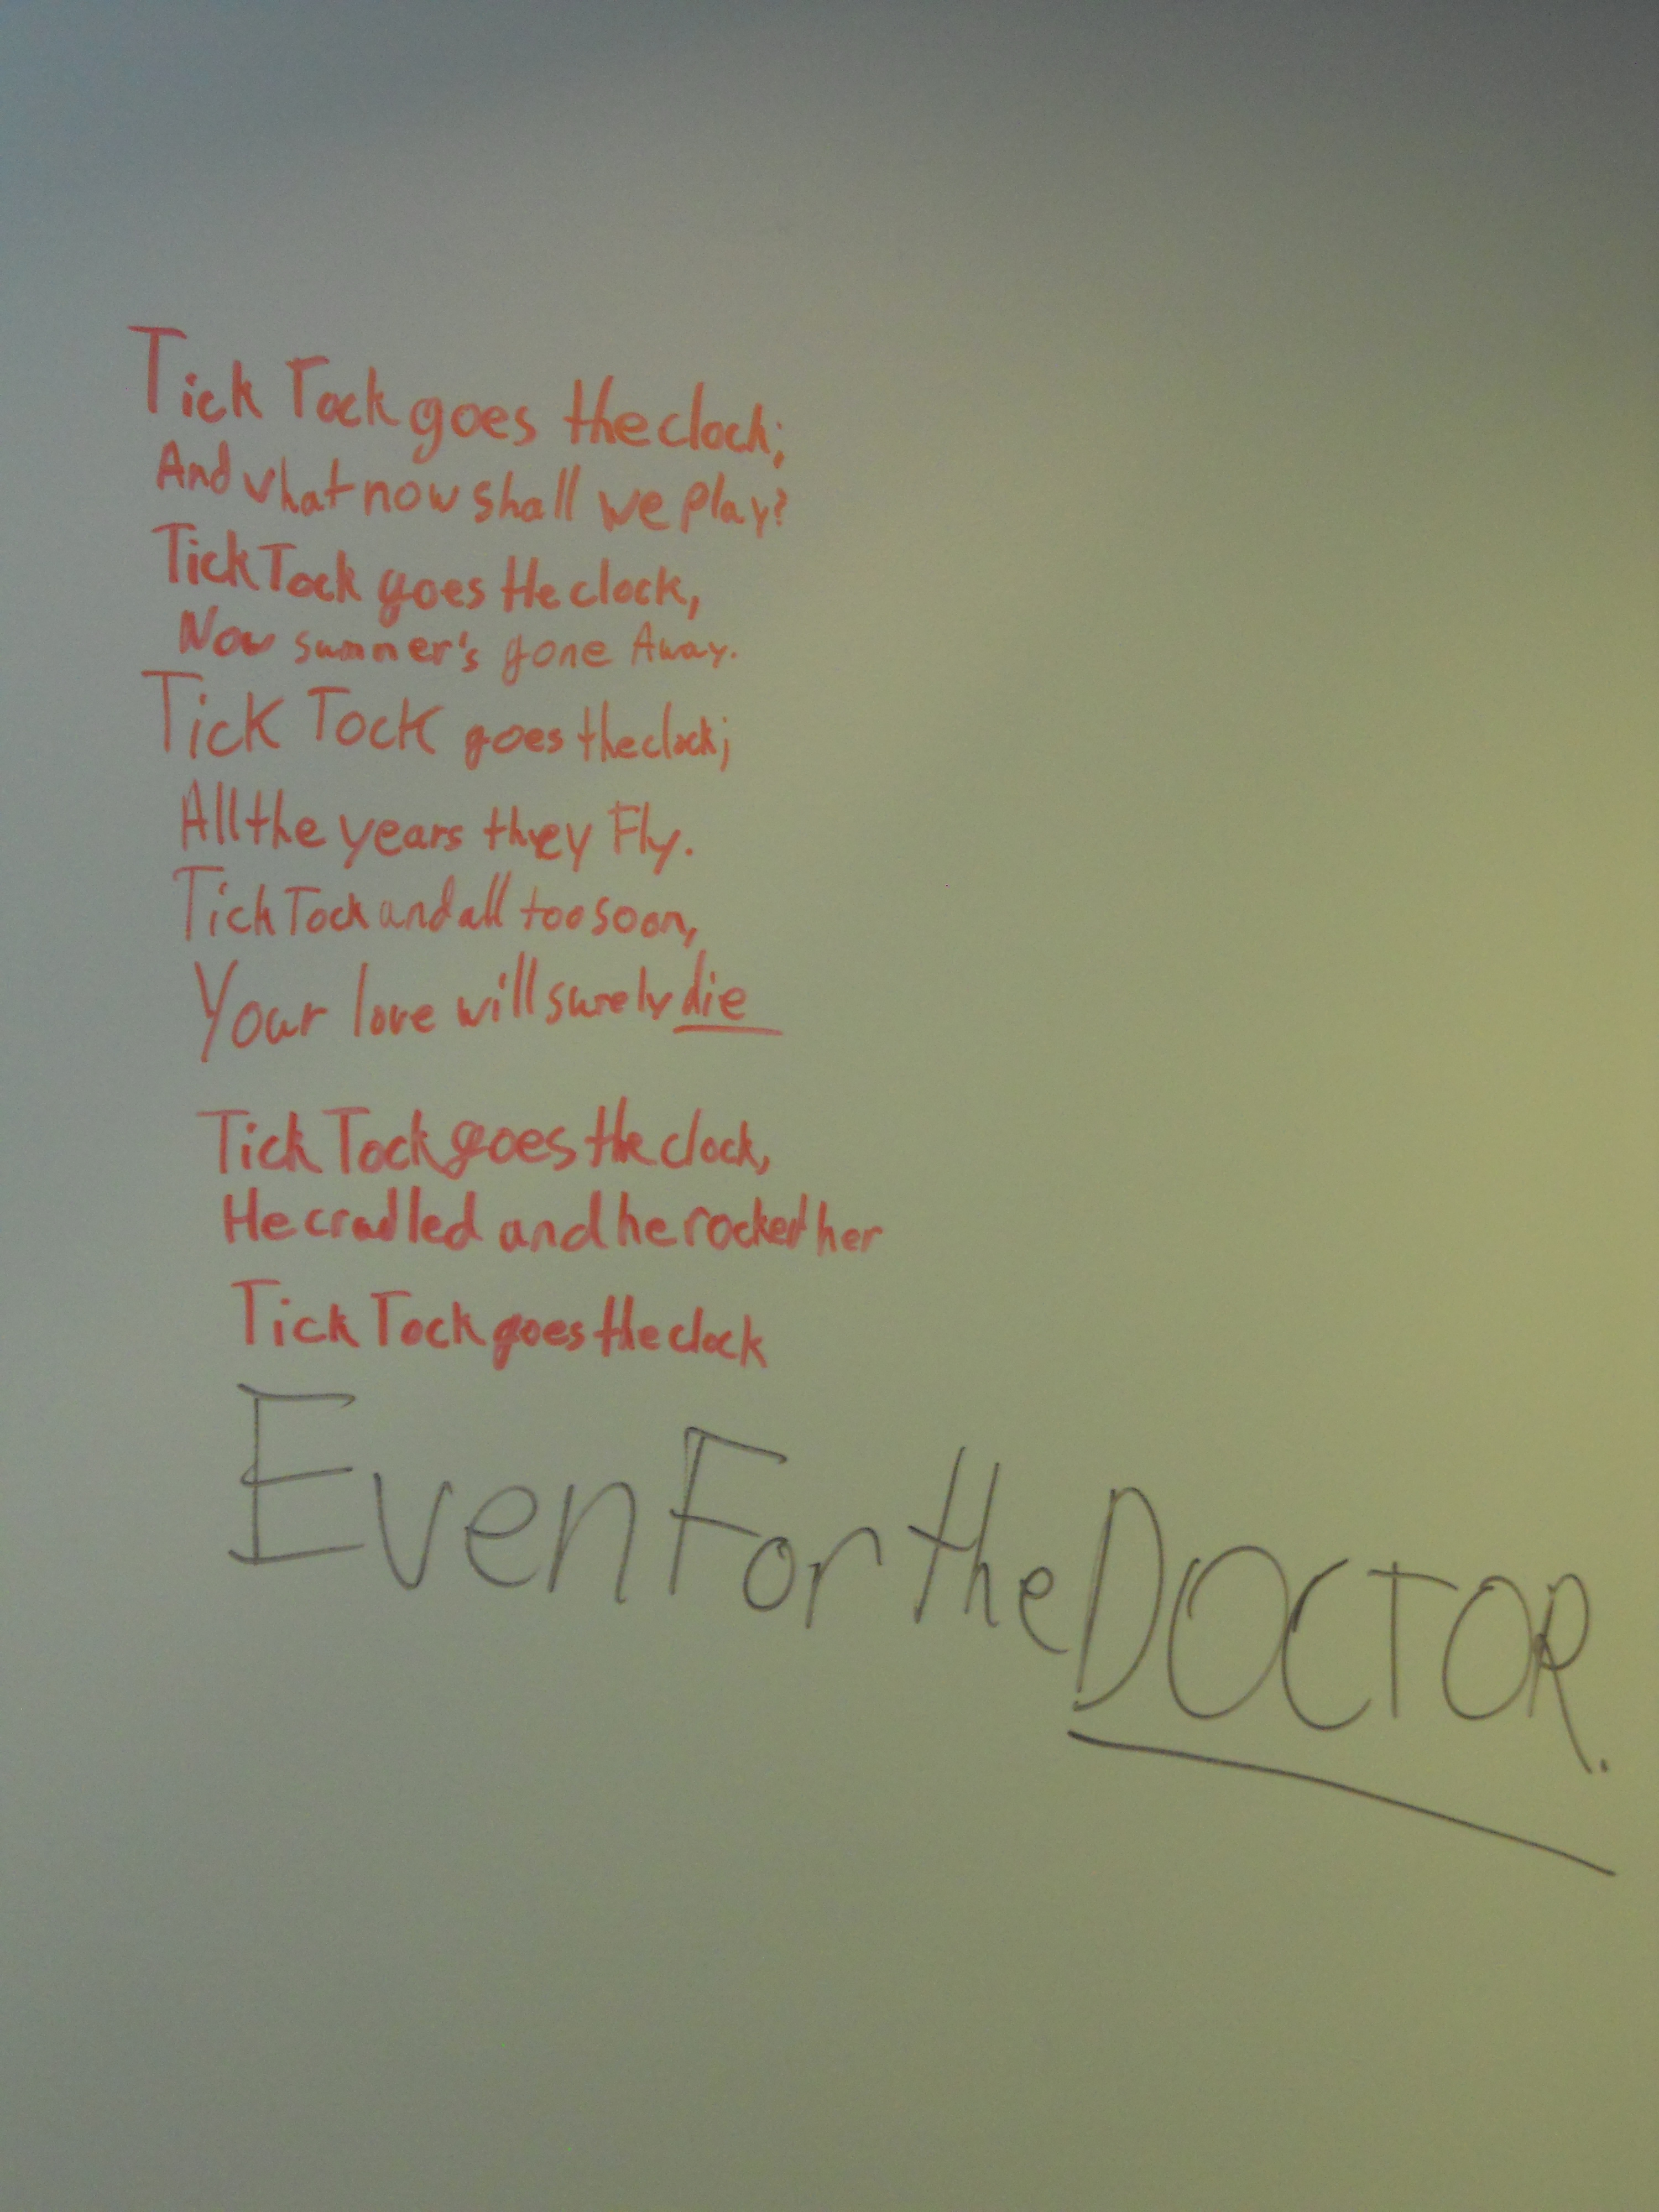 Tick Tock goes the clock;
And what now shall we play?
Tick Tock goes the clock,
Now summer's gone Away.
Tick Tock goes the clock;
All the years they Fly.
Tick Tock and all too soon,
Your love will surely die
Tick Tock goes the clock,
He cradled and he rocked her
Tick Tock goes the clock
Even For the DOCTOR.